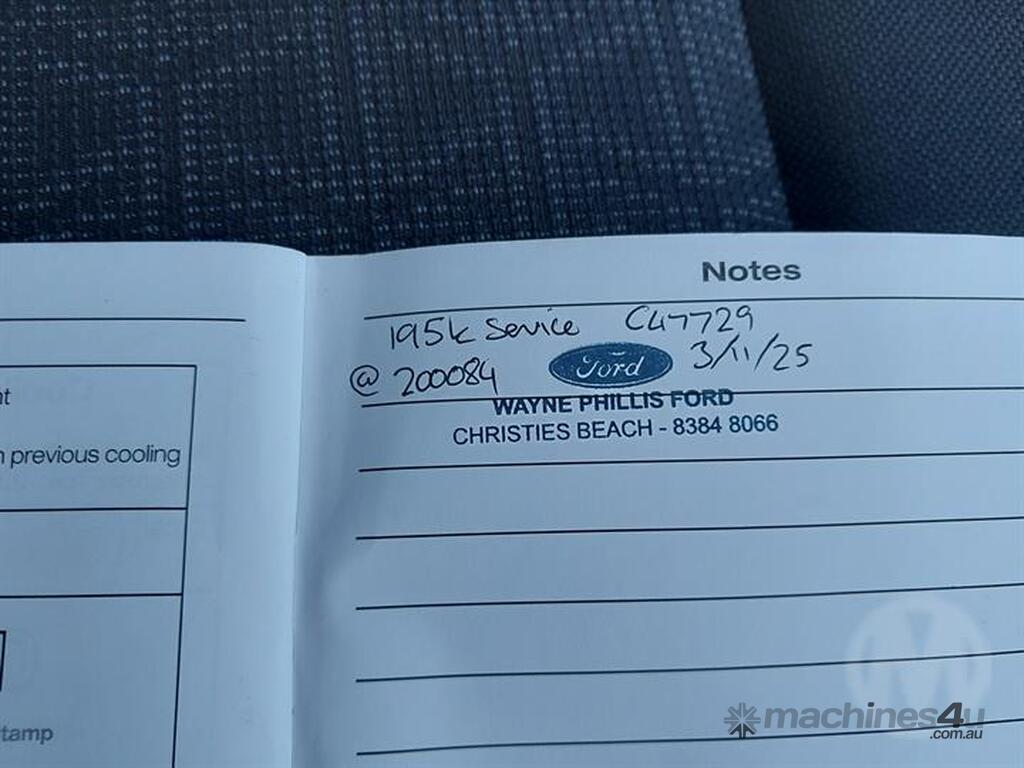 nt
n previous cooling
tamp
Notes
195k Service C47729
@ 200084 Ford 3/11/25
WAYNE PHILLIS FORD
CHRISTIES BEACH - 8384 8066
machines4u
.com.au